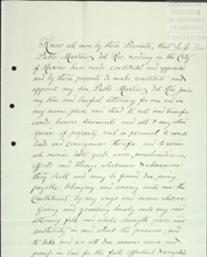 Know all men by these Presents, that I,
Pablo Martinez del Rio residing in the City
of Mexico have made, constituted and appointed
and by these presents do make constitute and
appoint my son Pablo Martinez del Rio junior
my true and lawful Attorney for me and in
my name place and stead to sell and transfer
lands, houses, tenements and all &amp; any other
species of property real or personal, to
deeds and conveyances therefor, and to
all
effects and things whatsoever &amp; wheresoever
they shall and may be found due, owing
payable, belonging and coming unto me the
Constituent, by any ways and means whatever.
Giving and granting hereby unto my said
Attorney full and whole strength power and
authority in and about the premises; and
to take and use all due means course and
process in law for the